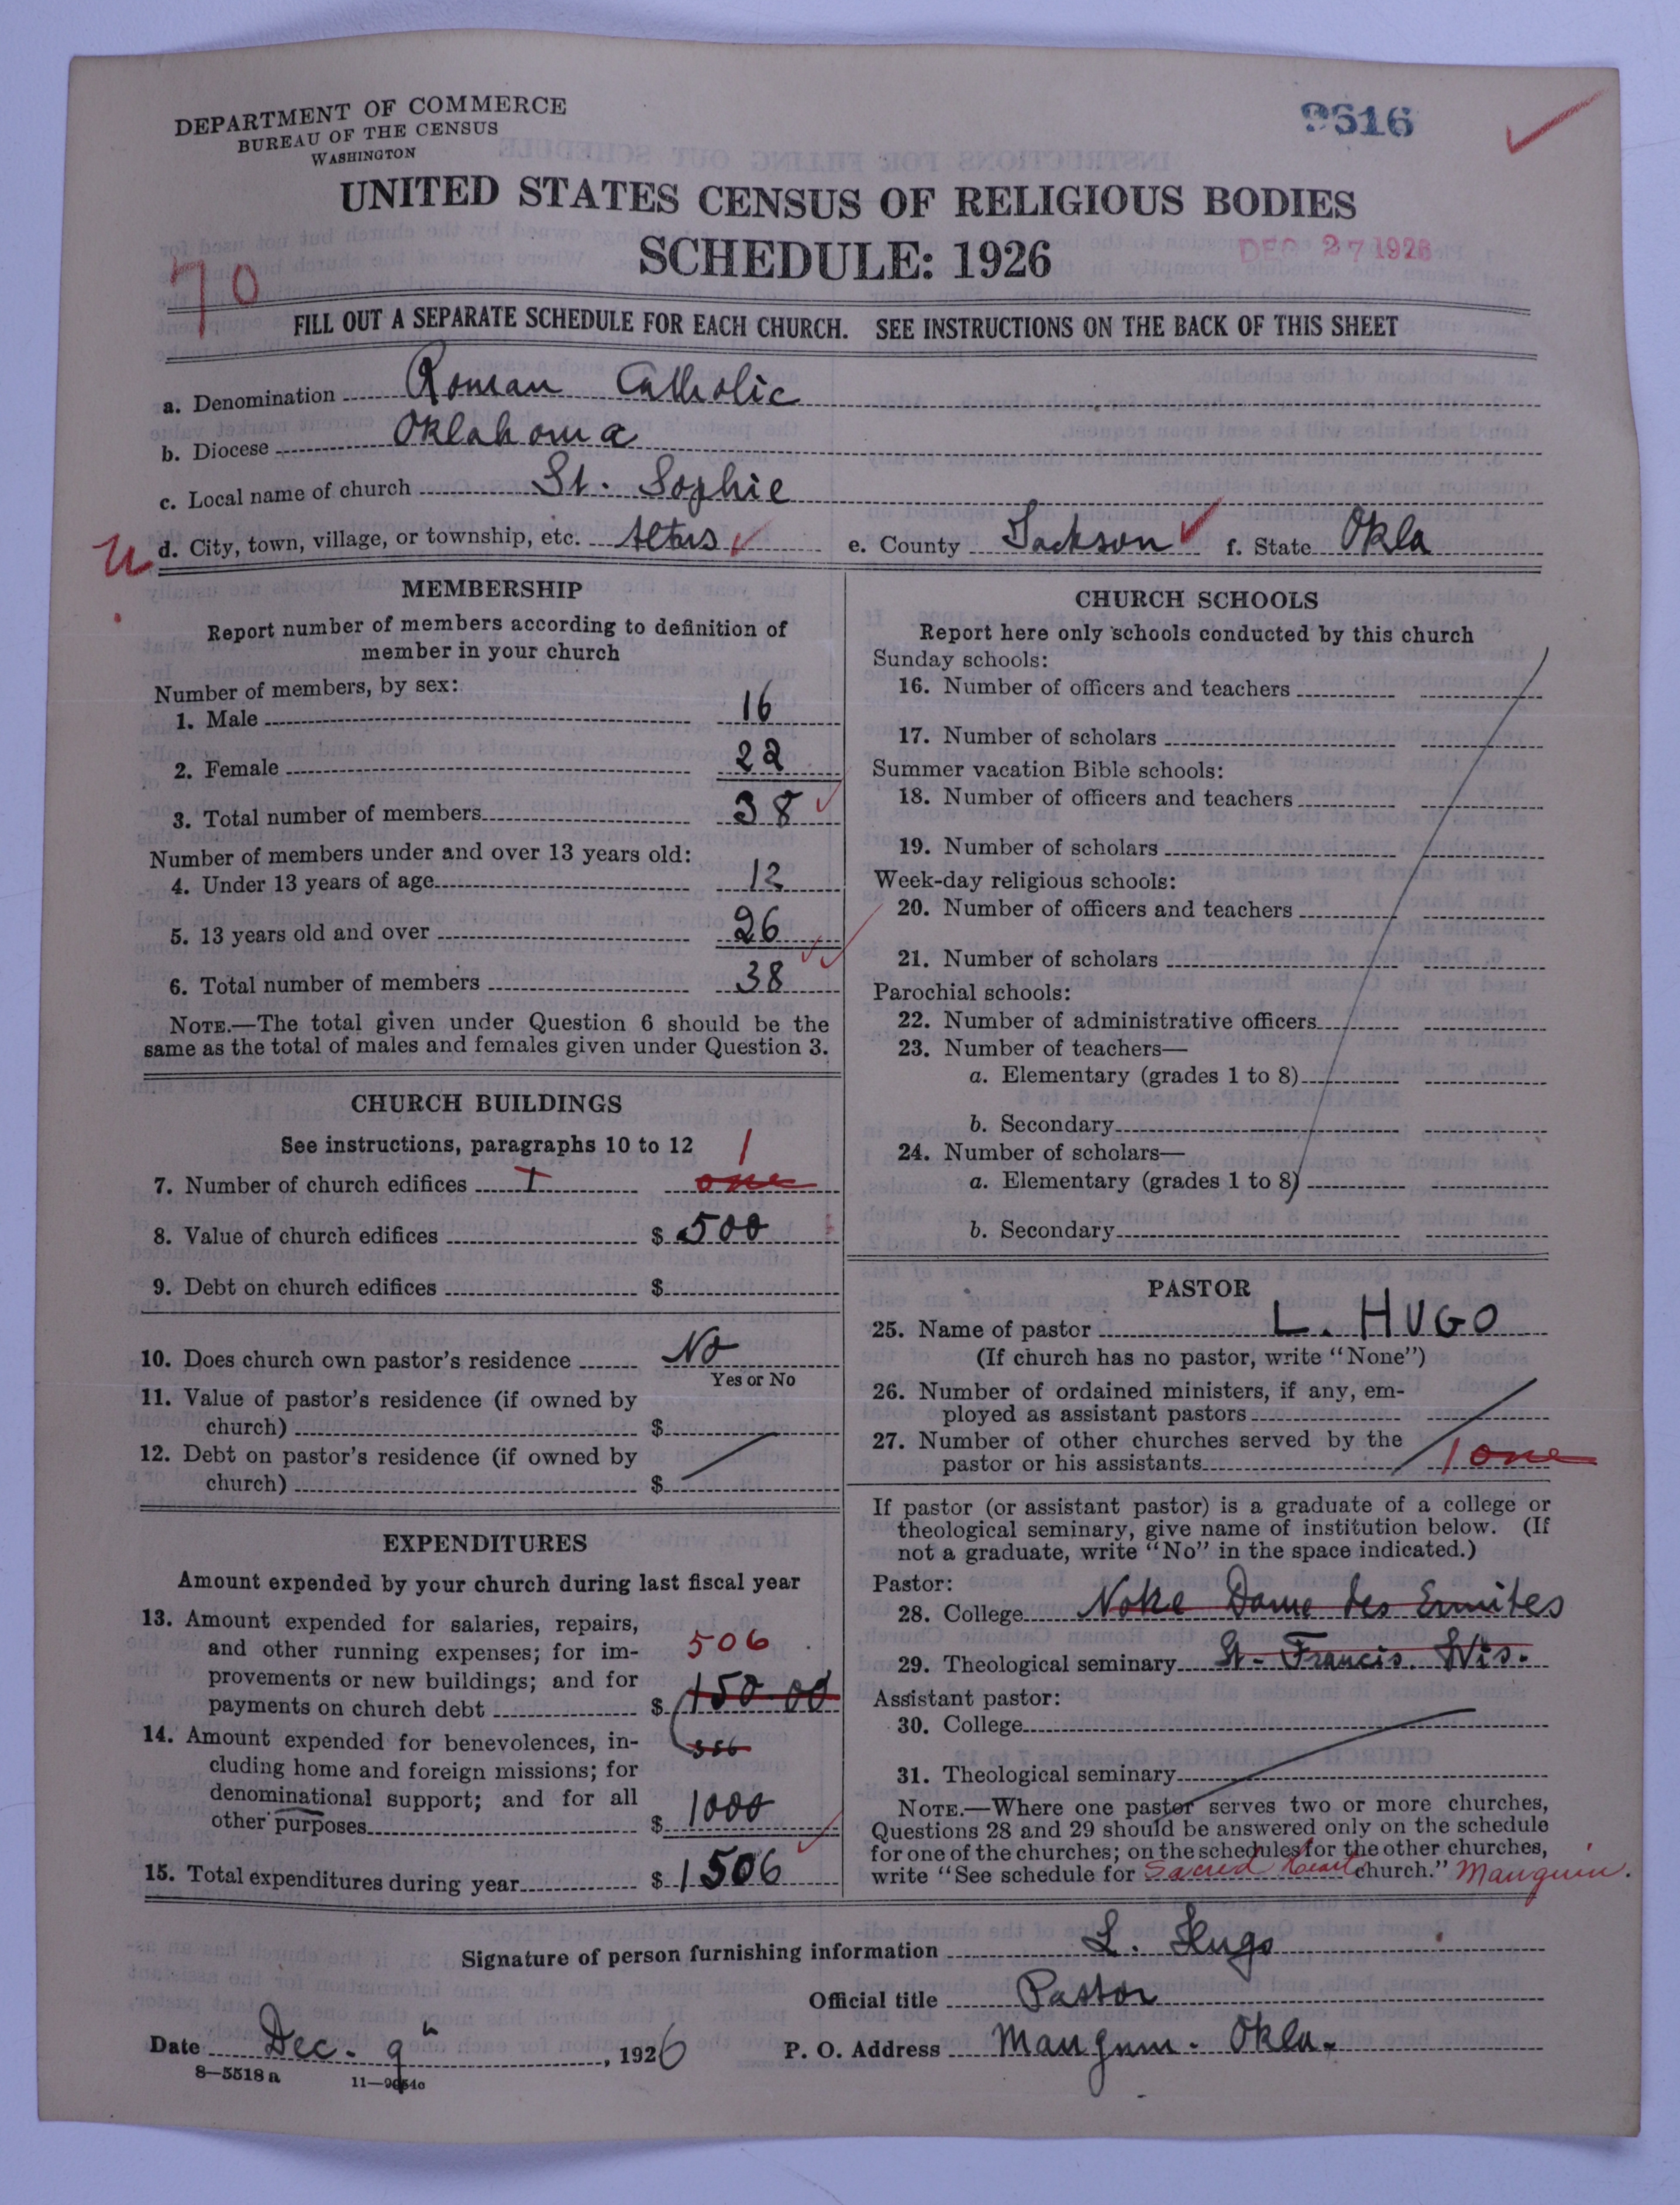 DEPARTMENT OF COMMERCE
BUREAU OF THE CENSUS
WASHINGTON
9616
UNITED STATES CENSUS OF RELIGIOUS BODIES
SCHEDULE: 1926
DEC 27 1926
70
FILL OUT A SEPARATE SCHEDULE FOR EACH CHURCH. SEE INSTRUCTIONS ON THE BACK OF THIS SHEET
a. Denomination Roman Catholic
b. Diocese Oklahoma
c. Local name of church St. Sophie
U d. City, town, village, or township, etc. Altus e. County Jackson f. State Okla
MEMBERSHIP
Report number of members according to definition of
member in your church
Number of members, by sex:
1. Male 16
2. Female 22
3. Total number of members 38
Number of members under and over 13 years old:
4. Under 13 years of age 12
5. 13 years old and over 26
6. Total number of members 38
NOTE.—The total given under Question 6 should be the
same as the total of males and females given under Question 3.
CHURCH BUILDINGS
See instructions, paragraphs 10 to 12
1
7. Number of church edifices I one
8. Value of church edifices $ 500
9. Debt on church edifices $
10. Does church own pastor's residence No
Yes or No
11. Value of pastor's residence (if owned by
church) $
12. Debt on pastor's residence (if owned by
church) $
EXPENDITURES
Amount expended by your church during last fiscal year
13. Amount expended for salaries, repairs,
and other running expenses; for im- 506
provements or new buildings; and for
payments on church debt $ 150.00
14. Amount expended for benevolences, in- 356
cluding home and foreign missions; for
denominational support; and for all
other purposes $ 1000
15. Total expenditures during year $ 1506
CHURCH SCHOOLS
Report here only schools conducted by this church
Sunday schools:
16. Number of officers and teachers
17. Number of scholars
Summer vacation Bible schools:
18. Number of officers and teachers
19. Number of scholars
Week-day religious schools:
20. Number of officers and teachers
21. Number of scholars
Parochial schools:
22. Number of administrative officers
23. Number of teachers—
a. Elementary (grades 1 to 8)
b. Secondary
24. Number of scholars—
a. Elementary (grades 1 to 8)
b. Secondary
PASTOR
25. Name of pastor L. HUGO
(If church has no pastor, write "None")
26. Number of ordained ministers, if any, em-
ployed as assistant pastors
27. Number of other churches served by the
pastor or his assistants 1 one
If pastor (or assistant pastor) is a graduate of a college or
theological seminary, give name of institution below. (If
not a graduate, write "No" in the space indicated.)
Pastor:
28. College Notre Dame des Ermites
29. Theological seminary St. Francis. Wis.
Assistant pastor:
30. College
31. Theological seminary
NOTE.—Where one pastor serves two or more churches,
Questions 28 and 29 should be answered only on the schedule
for one of the churches; on the schedules for the other churches,
write "See schedule for Sacred Heart church." Mangum.
Signature of person furnishing information L. Hugo
Official title Pastor
Date Dec. 9th, 1926 P. O. Address Mangum. Okla.
8—5518 a